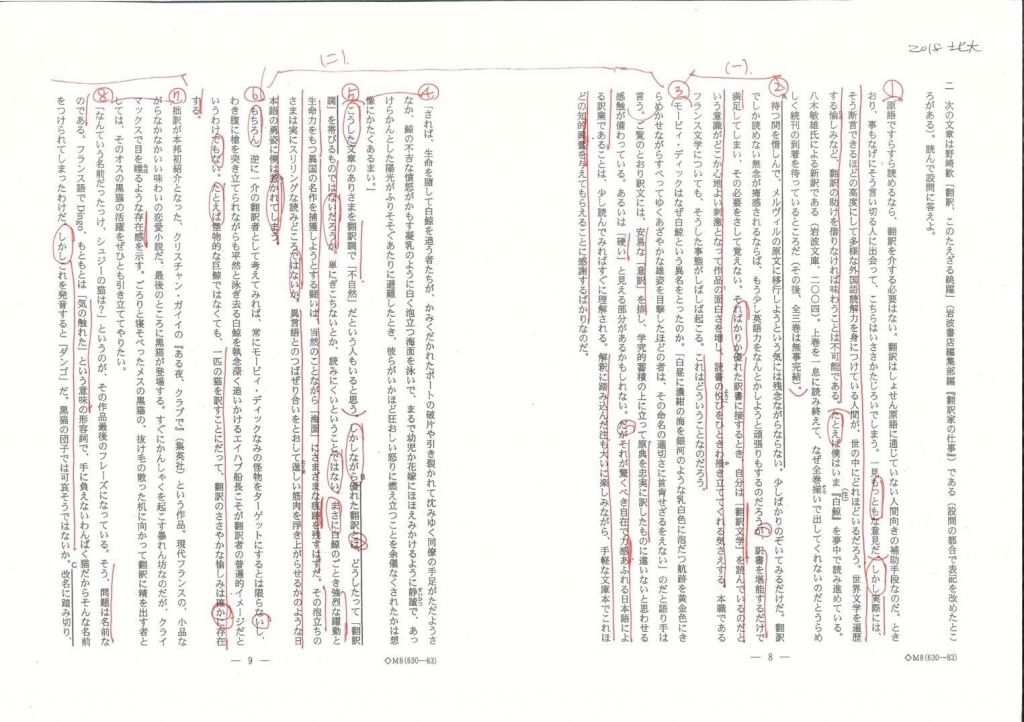 2018 北大
二　次の文章は野崎歓「翻訳、このたえざる跳躍」(岩波書店編集部編『翻訳家の仕事』)である(設問の都合で表記を改めたとこ
ろがある)。読んで設問に答えよ。
(一)
①
原語ですらすら読めるなら、翻訳を介する必要はない。翻訳はしょせん原語に通じていない人間向きの補助手段なのだ。とき
おり、事もなげにそう言い切る人に出会って、こちらはいささかたじろいでしまう。一見もっともな意見だ。しかし実際には、
そう断言できるほどの高度にして多様な外国語読解力を身につけている人間が、世の中にどれほどいるだろう。世界文学を遍歴
する愉しみなど、翻訳の助けを借りなければ味わうことは不可能である。たとえば僕はいま『白鯨』を夢中で読み進めている。
八木敏雄氏による新訳である(岩波文庫、二〇〇四)。上巻を一息に読み終えて、なぜ全巻揃いで出してくれないのだとうらめ
しく続刊の到着を待っているところだ(その後、全三巻は無事完結)。
②
待つ間を惜しんで、メルヴィルの原文に移行しようという気には残念ながらならない。少しばかりのぞいてみるだけだ。翻訳
でしか読めない無念が痛感されるならば、もう少し英語力をなんとかしようと頑張りもするのだろうが、訳書を堪能するだけで
満足してしまい、その必要をさして覚えない。そればかりか優れた訳書に接するとき、自分は「翻訳文学」を読んでいるのだと
いう意識がどこか心地よい刺激となって作品の面白さを増し、読書の悦びをひときわ掻き立ててくれる気さえする。本職である
フランス文学についても、そうした事態がしばしば起こる。これはどういうことなのだろう。
(二)
③
モービィ・ディックはなぜ白鯨という異名をとったのか。「白昼に濃紺の海を銀河のような乳白色に泡だつ航跡を黄金色にき
らめかせながらすべってゆくあざやかな雄姿を目撃したほどの者は、その命名の適切さに首肯せざるをえない」のだと語り手は
言う。ご覧のとおり訳文には、安易な「意訳」を排し、学究的蓄積の上に立って原典を忠実に訳したものに違いないと思わせる
感触が備わっている。あるいは「硬い」と見える部分があるかもしれない。だがそれが驚くべき自在で力感あふれる日本語によ
る訳業であることは、少し読んでみればすぐに理解される。解釈に踏み込んだ注も大いに楽しみながら、手軽な文庫本でこれほ
どの知的興奮を与えてもらえることに感謝するばかりなのだ。
― 8 ―
◇M8(630―82)
④
「されば、生命を賭して白鯨を追う者たちが、かみくだかれたボートの破片や引き裂かれて沈みゆく同僚の手足がただようさ
なか、鯨の不吉な憤怒がかもす凝乳のように白く泡立つ海面を泳いで、まるで幼児か花嫁にほほえみかけるように静謐で、あっ
けらかんとした陽光がふりそそぐあたりに避難したとき、彼らがいかほど狂おしい怒りに燃え立つことを余儀なくされたかは想
像にかたくあるまい。」
⑤
こうした文章のありさまを翻訳調で「不自然」だという人もいると思う。しかしながら優れた翻訳とは、どうしたって「翻訳
調」を帯びるものではないだろうか。単にぎこちないとか、読みにくいということではない。まさに白鯨のごとき強烈な躍動と
生命力をもつ異国の名作を捕獲しようとする闘いは、当然のことながら「海面」にさまざまな痕跡を残すはずだ。その泡立ちの
さまは実にスリリングな読みどころではないか。異言語とのつばぜり合いをとおして逞しい筋肉を浮き上がらせるかのような日
本語の勇姿に僕は惹かれてしまう。
⑥
もちろん、逆に一介の翻訳者として考えてみれば、常にモービィ・ディックなみの怪物をターゲットにするとは限らないし、
わき腹に槍を突き立てられながらも平然と泳ぎ去る白鯨を執念深く追いかけるエイハブ船長こそが翻訳者の普遍的イメージだと
いうわけでもない。たとえば怪物的な巨鯨ではなくても、一匹の猫を訳すことにだって、翻訳のささやかな愉しみは確かに存在
する。
⑦
拙訳が本邦初紹介となった、クリスチャン・ガイイの『ある夜、クラブで』(集英社)という作品。現代フランスの、小品な
がらなかなかいい味わいの恋愛小説だ。最後のところに黒猫が登場する。すぐにかんしゃくを起こす暴れん坊なのだが、クライ
マックスで目を瞠るような存在感を示す。ごろりと寝そべったメスの黒猫の、抜け毛の散った机に向かって翻訳に精を出す者と
しては、そのオスの黒猫の活躍をぜひとも引き立ててやりたい。
⑧
「なんていう名前だったっけ、シュジーの猫は？」というのが、その作品最後のフレーズになっている。そう、問題は名前な
のである。フランス語で Dingo。もともとは「気の触れた」という意味の形容詞で、手に負えないわんぱく猫だからそんな名前
をつけられてしまったわけだ。しかしこれを発音すると「ダンゴ」だ。黒猫の団子では可哀そうではないか。改名に踏み切り、
C
― 9 ―
◇M8(630―83)